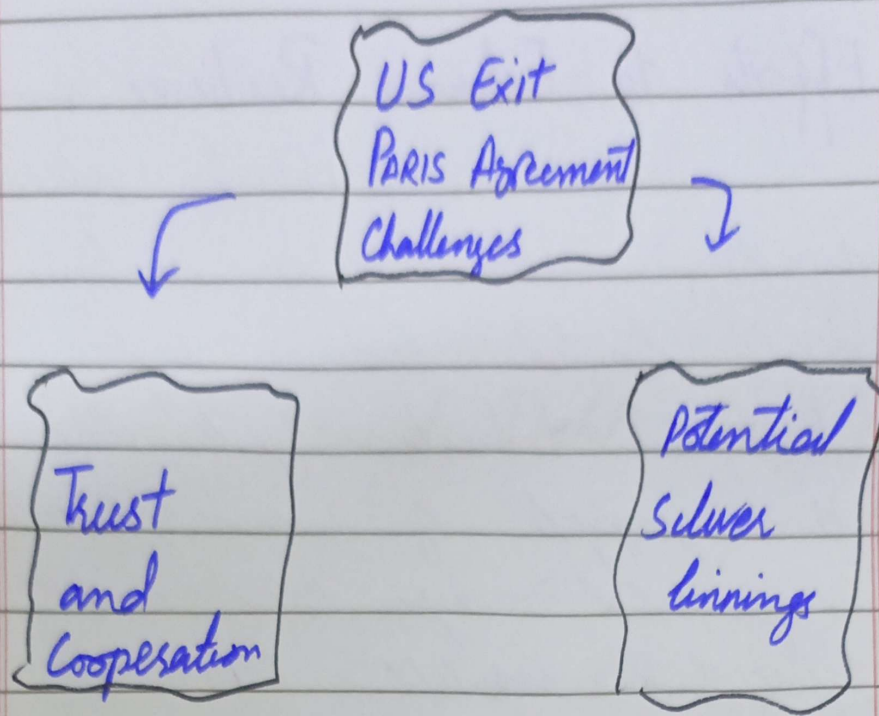 US Exit
PARIS Agreement
Challenges
Trust
and
Cooperation
Potential
Silver
linnings